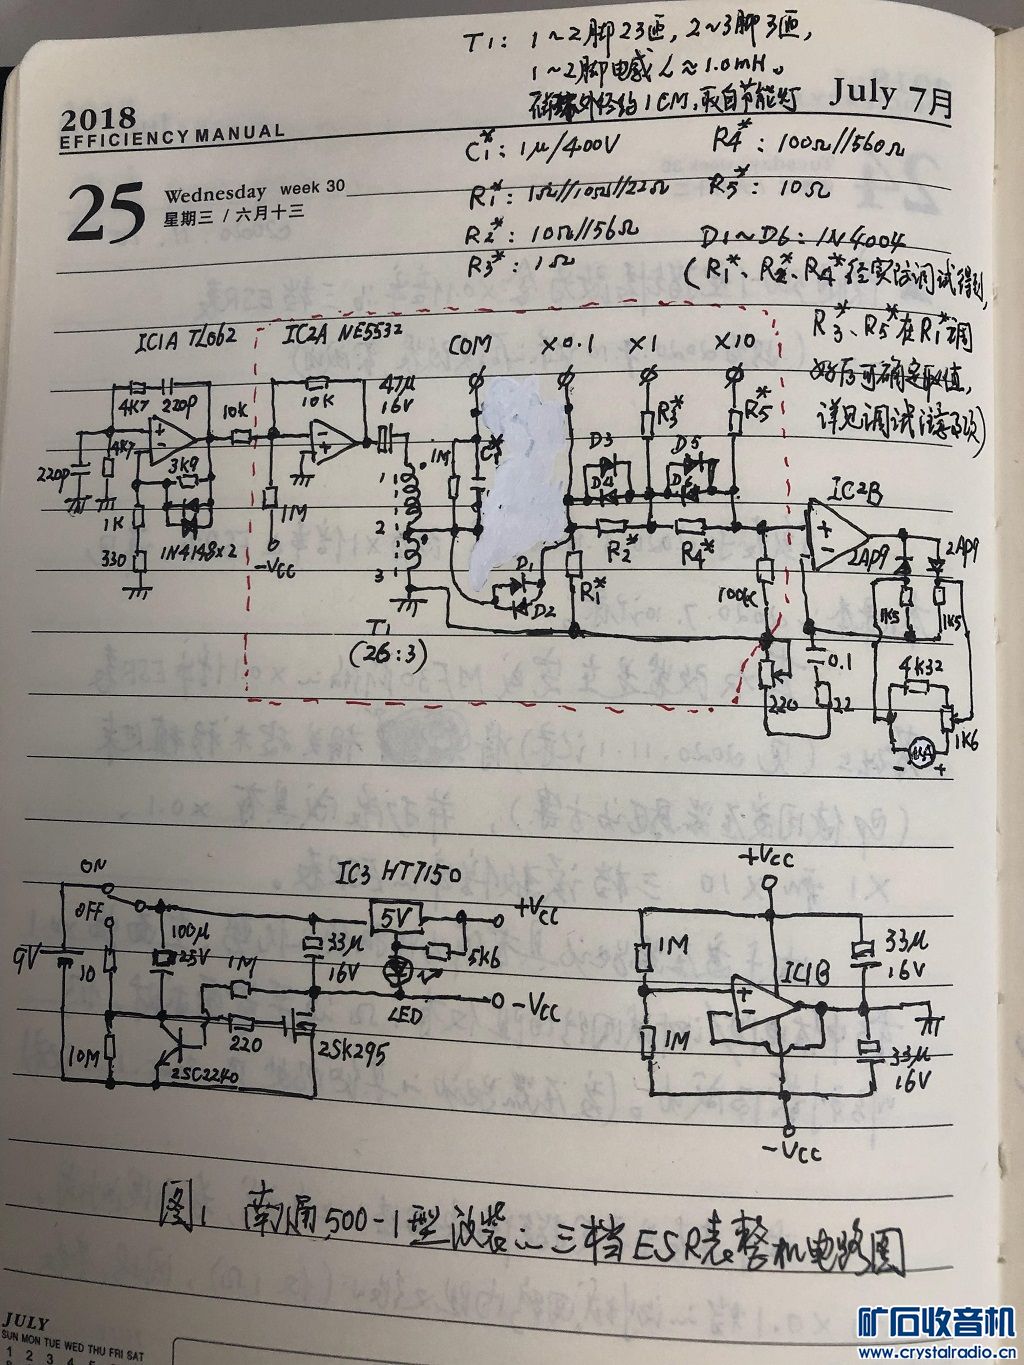 T1: 1~2脚23匝, 2~3脚3匝,
1~2脚电感 L≈1.0mH。
磁环外径约1CM,取自节能灯
July 7月
2018
EFFICIENCY MANUAL
C1*: 1μ/400V
R4*: 100Ω//560Ω
25
Wednesday week 30
星期三 / 六月十三
R1*: 1Ω//10Ω//22Ω
R5*: 10Ω
R2*: 10Ω//56Ω
D1~D6: 1N4004
R3*: 1Ω
(R1*、R2*、R4*经实际调试得到,
R3*、R5*在R1*调
好后可确定取值,
详见调试注意事项)
IC1A TL062
IC2A NE5532
COM
×0.1
×1
×10
4K7
220P
10K
10K
47μ
16V
R3*
R5*
4K7
220P
3K9
1M
1M
C1*
D3
D4
D5
D6
IC2B
1K
330
1N4148×2
-VCC
1
2
3
D1
D2
R1*
R2*
R4*
100K
2AP9
2AP9
1K5
1K5
T1
(26:3)
220
0.1
22
4K32
1K6
μA
- +
ON
OFF
IC3 HT7150
+VCC
5V
+VCC
9V
10
100μ
25V
1M
33μ
16V
5K6
LED
-VCC
10M
2SC2240
220
2SK295
1M
1M
IC1B
33μ
16V
33μ
16V
-VCC
图1 南浦500-1型改装三档ESR表整机电路图
JULY
SUN MON TUE WED THU FRI SAT
1 2 3 4
矿石收音机
www.crystalradio.cn